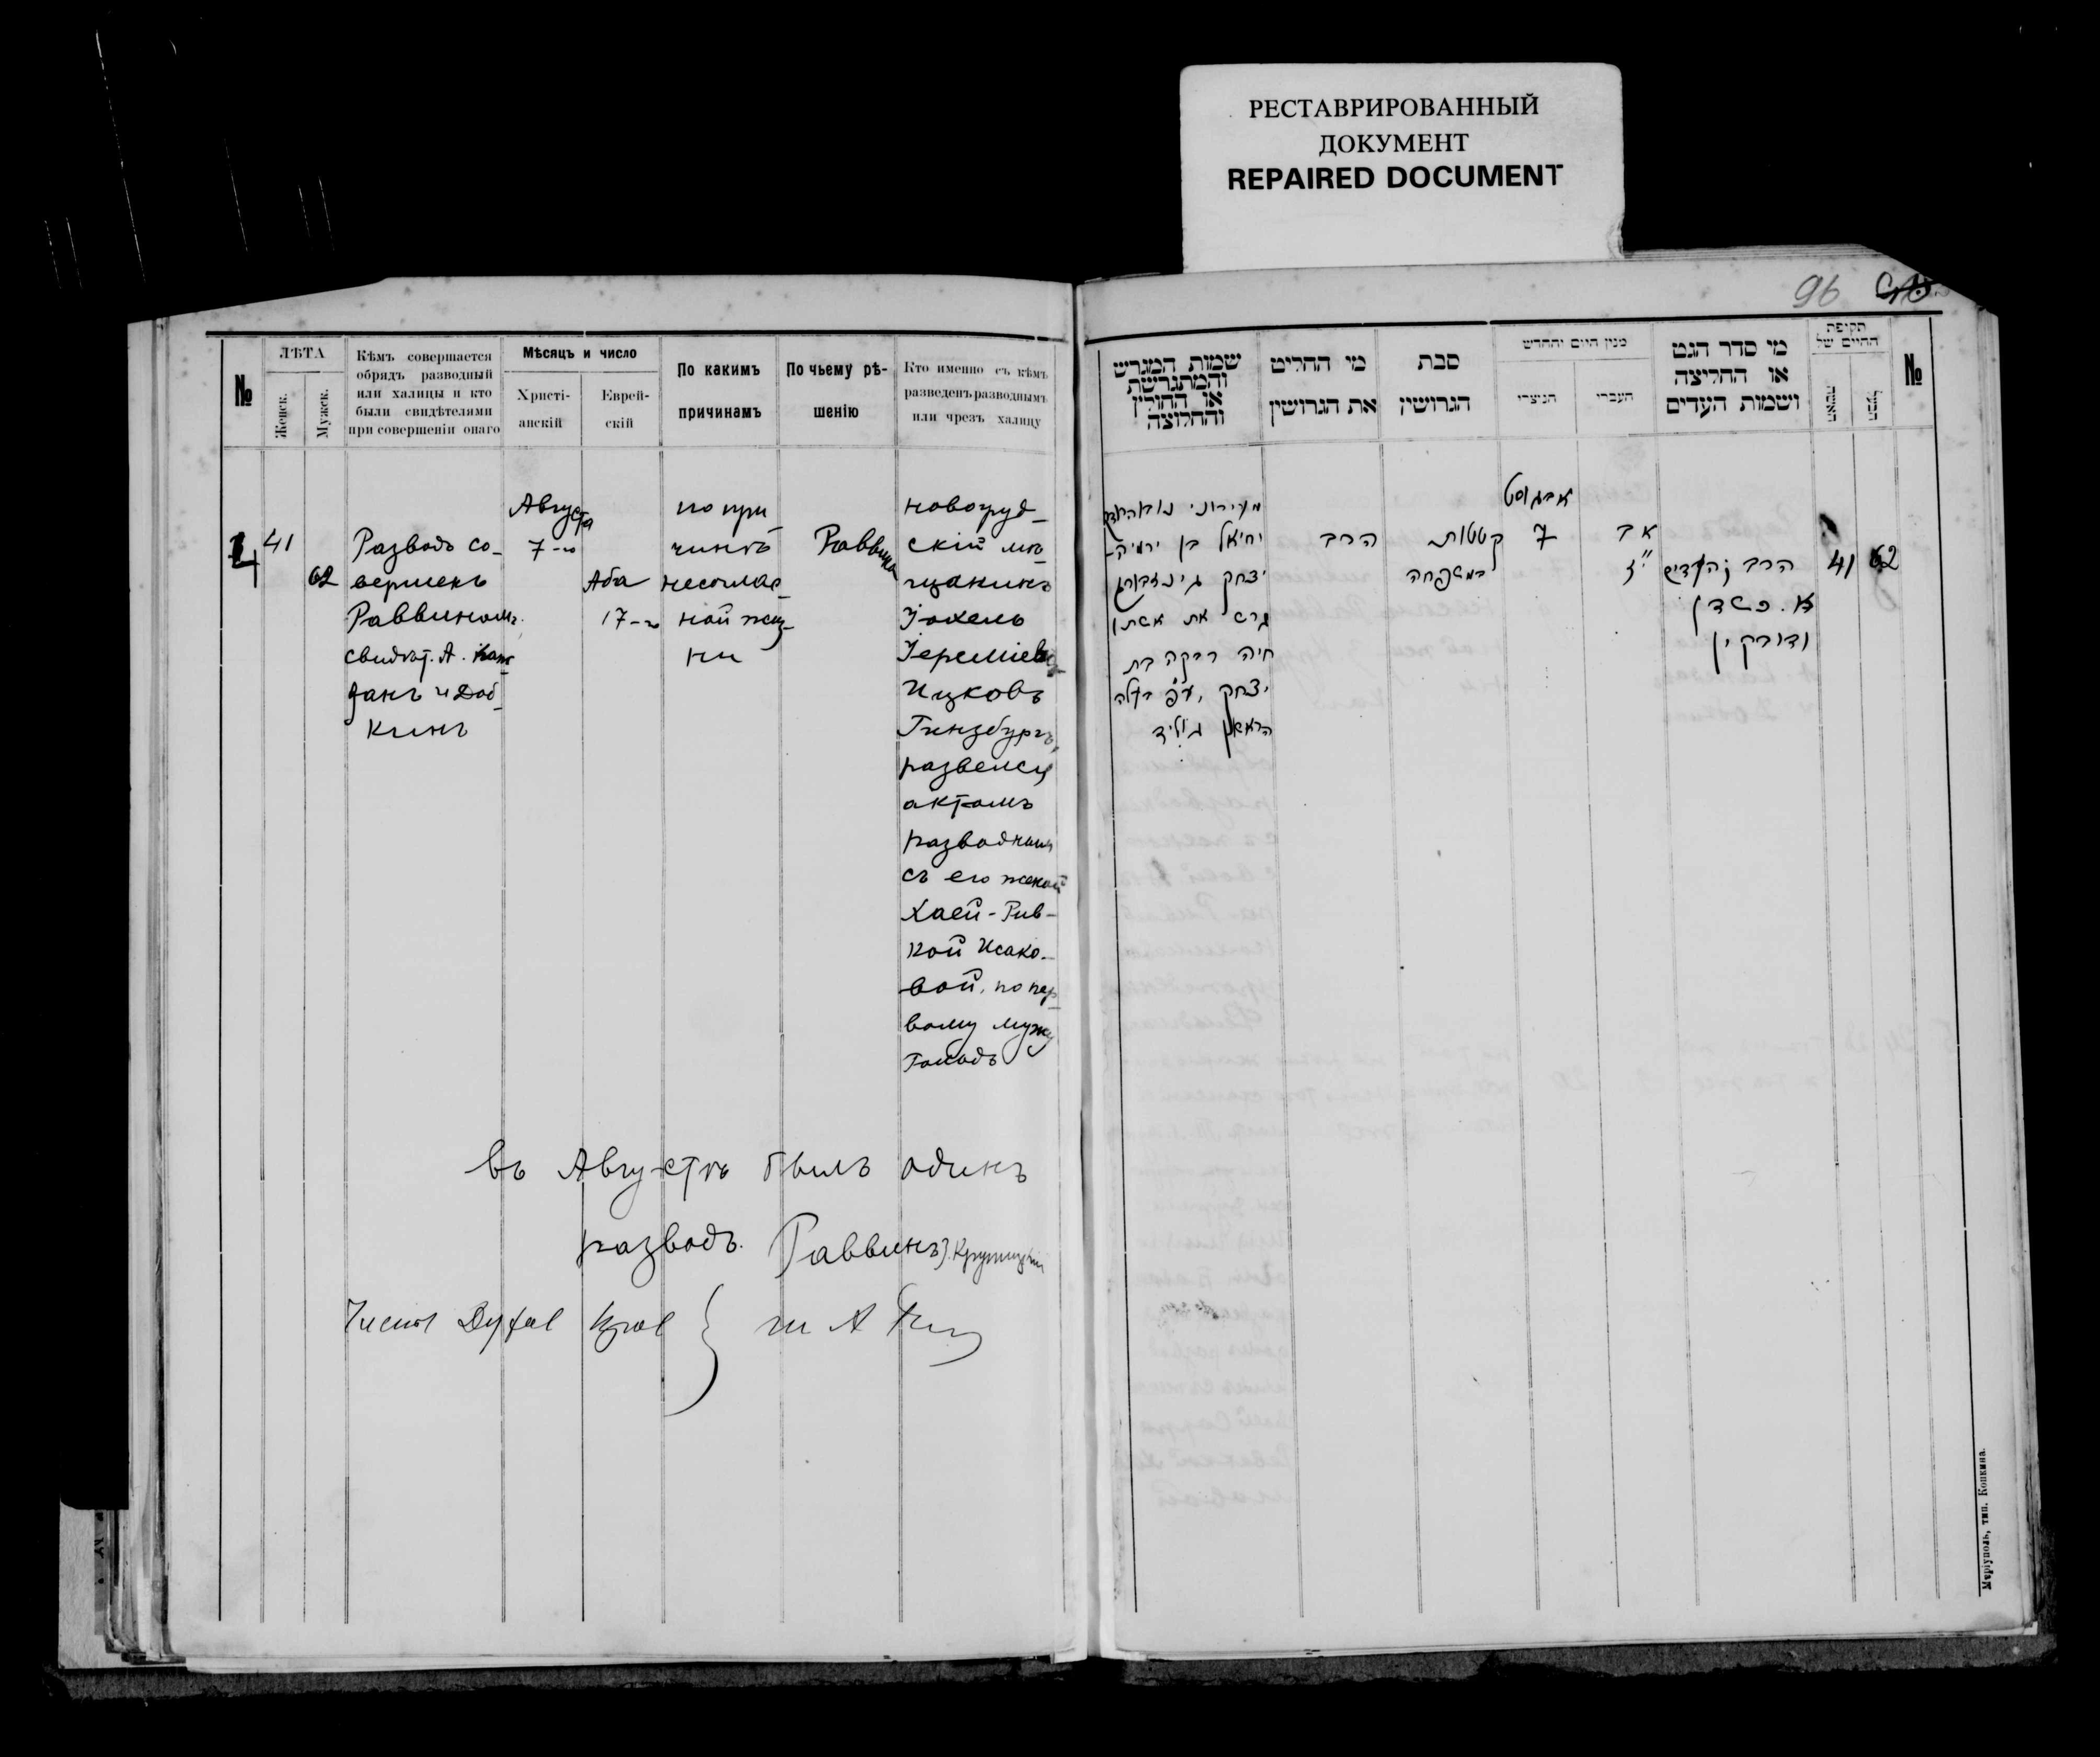 РЕСТАВРИРОВАННЫЙ
ДОКУМЕНТ
REPAIRED DOCUMENT
96
№
ЛѢТА
Женск.
Мужск.
Кѣмъ совершается
обрядъ разводный
или халицы и кто
были свидѣтелями
при совершеніи онаго
Мѣсяцъ и число
Христі-
анскій
Еврей-
скій
По какимъ
причинамъ
По чьему рѣ-
шенію
Кто именно съ кѣмъ
разведенъ разводнымъ
или чрезъ халицу
4
41
62
Разводъ со-
вершенъ
Раввиномъ.
свидѣт. А. Каж
данъ и Доб-
кинъ
Августа
7-го
Аба
17-го
по при
чинѣ
несоглас-
ной жиз-
ни
Раввина
новогруд-
скій мѣ-
щанинъ
Іохель
Іереміев
Ицковъ
Гинзбургъ,
развелся
актомъ
разводнымъ
съ его женой
Хаей-Рив-
кой Исако-
вой, по пер-
вому мужу
въ Августѣ былъ одинъ
разводъ. Раввинъ З. Крупицкій
שמות המגרש
והמתגרשת
או החולץ
והחלוצה
מי החליט
את הגרושין
סבת
הגרושין
מנין היום והחדש
הנוצרי
העברי
מי סדר הגט
או החליצה
ושמות העדים
תקופת
החיים של
האשה
הבעל
№
יחיאל בן ירמיה-
יצחק גינזבורג
גרש את אשתו
חיה רבקה בת
יצחק
הרב
קטטות
במשפחה
אוגוסט
7
אב
י״ז
הרב והעדים
א. כשדן
ודובקין
41
62
Маріуполь, тип. Копкина.